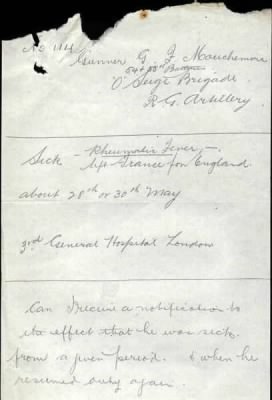 No 114
Gunner G. F. Mouchemore
54th Battery
"O" Seige Brigade
R. G. Artillery
Sick - Rheumatic Fever -.
left France for England
about 28th or 30th May
3rd General Hospital London
Can I receive a notification to
the effect that he was sick
from a given period. & when he
resumed duty again.